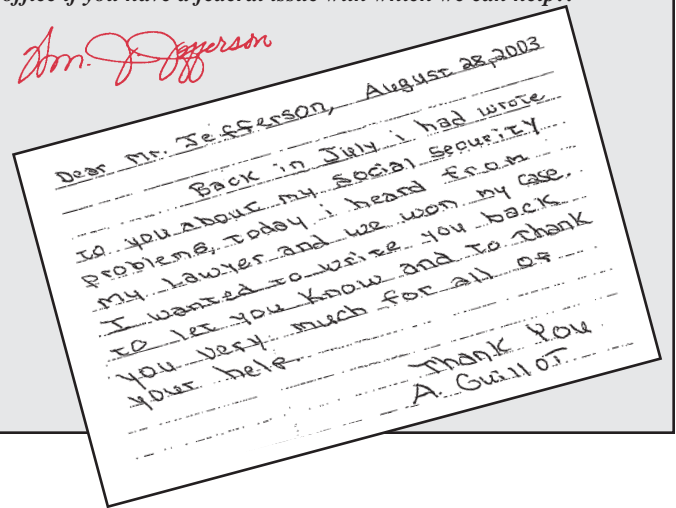 office if you have a federal issue with which we can help!!
Wm. J. Jefferson
August 28, 2003
Dear Mr. Jefferson,
Back in July i had wrote
to you about my Social Security
problems, today i heard from
my Lawyer and we won my case.
I wanted to write you back
to let you Know and to thank
you very much for all of
your help.
Thank You
A. Guillot